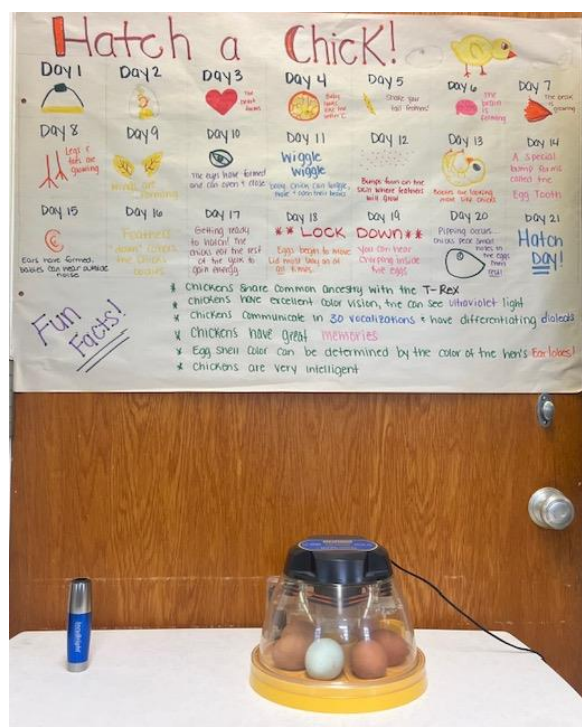 Hatch a Chick!
Day 1
Day 2
Day 3
The heart beats
Day 4
Day 5
Shake your tail feathers!
Day 6
The brain is forming
Day 7
The beak is growing
Day 8
Legs & feet are growing
Day 9
Wings are forming
Day 10
The eyes have formed and can open & close
Day 11
Wiggle
Wiggle
Day 12
Bumps form on the skin where feathers will grow
Day 13
Babies are looking more like chicks
Day 14
A special bump forms called the Egg Tooth
Day 15
Ears have formed, babies can hear outside noise
Day 16
Feathered down covers the chicks bodies
Day 17
Getting ready to hatch! The chicks eat the rest of the yolk to gain energy
Day 18
Day 19
** LOCK DOWN **
Eggs begin to move
Lid must stay on at all times
You can hear chirping inside the eggs
Day 20
Pipping occurs...
Day 21
Hatch
Day!
Fun
Facts!
* Chickens share common ancestry with the T-Rex
* chickens have excellent color vision, the can see ultraviolet light
* Chickens communicate in 30 vocalizations & have differentiating dialects
* Chickens have great memories
* Egg shell color can be determined by the color of the hen's Earlobes!
* chickens are very intelligent